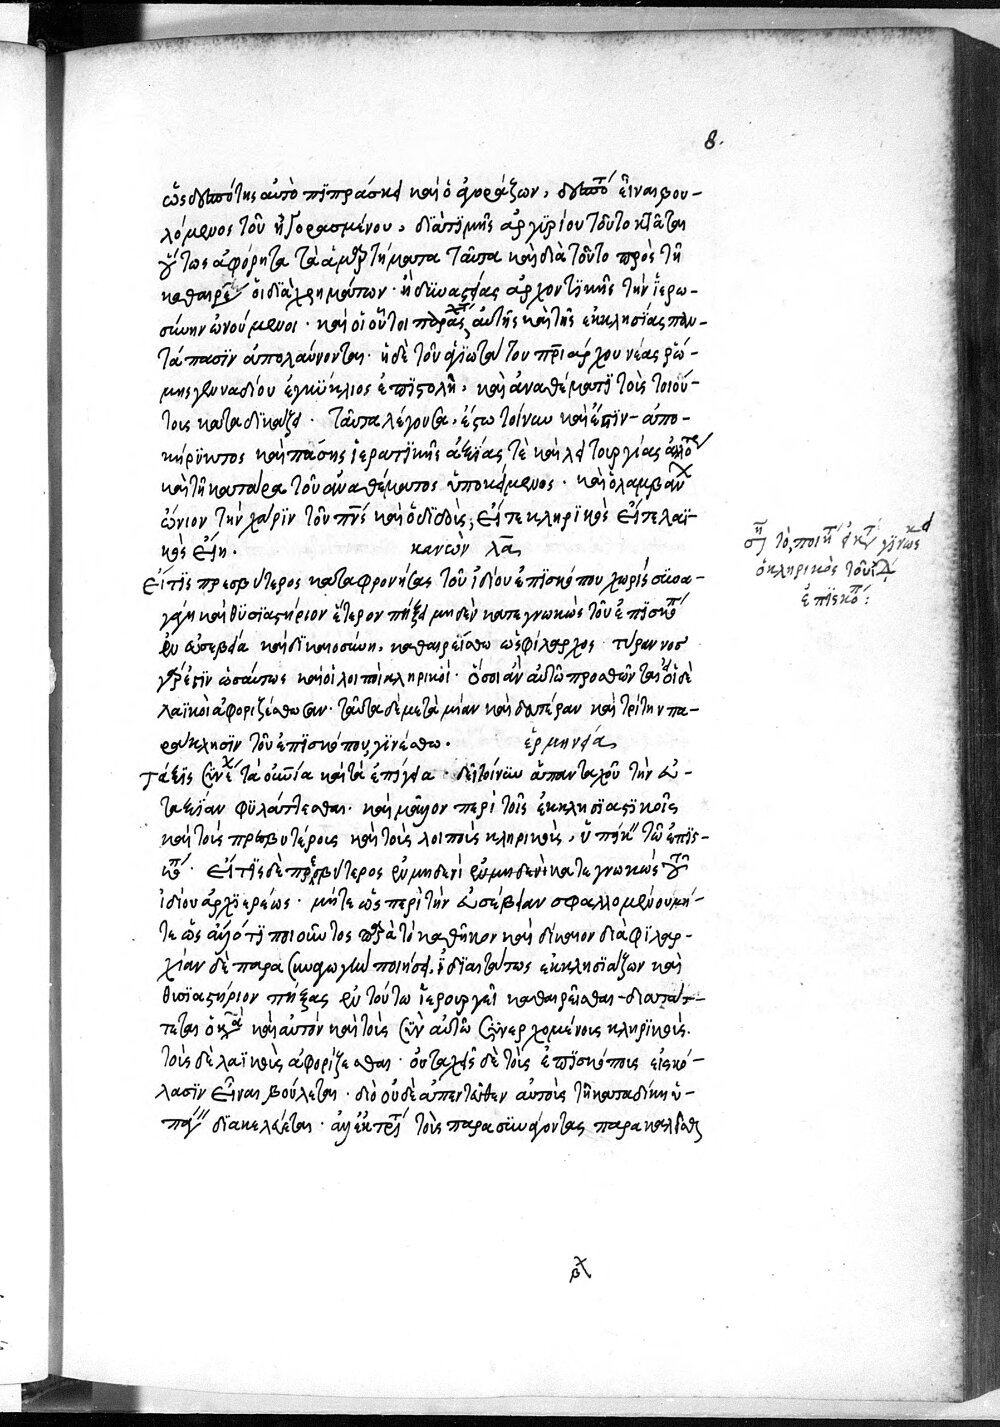 8.
ὡς δυνατότης αὐτὸ πιπράσκει καὶ ὁ ἀγοράζων, εἶναι βου-
λόμενος τοῦ ἠγορασμένου, διὰ τιμῆς ἀργυρίου τοῦτο κτᾶται
οὕτως ἀφόρητα τὰ ἁμαρτήματα ταῦτα καὶ διὰ τοῦτο πρὸς τῇ
καθαιρέσει οἱ διὰ χρημάτων. ἢ δυναστείας ἀρχοντικῆς τὴν ἱερω-
σύνην ὠνούμενοι. καὶ οἱ οὗτοι αὐτῆς καὶ τῆς ἐκκλησίας παν-
τάπασιν ἀπολαύνονται. ἡ δὲ τοῦ ἁγιωτάτου πατριάρχου νέας ῥώ-
μης γενναδίου ἐγκύκλιος ἐπιστολὴ, καὶ ἀναθέματι τοὺς τοιού-
τους καταδικάζει. ταῦτα λέγουσα, ἔστω τοίνυν καὶ ἔστιν ἀπο-
κήρυκτος καὶ πάσης ἱερατικῆς ἀξίας τὲ καὶ λειτουργίας ἀλλότριος
καὶ τῇ κατάρα τοῦ ἀναθέματος ὑποκείμενος. καὶ ὁ λαμβάνων
ὤνιον τὴν χάριν τοῦ πνς καὶ ὁ διδοὺς, εἴτε κληρικὸς εἴτε λαϊ-
κὸς εἴη. κανὼν λα
εἴτις πρεσβύτερος καταφρονήσας τοῦ ἰδίου ἐπισκόπου χωρὶς συνα-
γάγη καὶ θυσιαστήριον ἕτερον πήξει μηδὲν κατεγνωκὼς τοῦ ἐπισκόπου
ἐν εὐσεβεία καὶ δικαιοσύνη, καθαιρείσθω ὡς φίλαρχος. τύραννος
γάρ ἐστιν ὡσαύτως καὶ οἱ λοιποὶ κληρικοὶ. ὅσοι ἂν αὐτῶ προσθῶνται οἱ δὲ
λαϊκοὶ ἀφοριζέσθωσαν. ταῦτα δὲ μετὰ μίαν καὶ δευτέραν καὶ τρίτην πα-
ράκλησιν τοῦ ἐπισκόπου γινέσθω. ἑρμηνεία
τάξις συνέχει τὰ οὐράνια καὶ τὰ ἐπίγεια. δεῖ τοίνυν ἁπανταχοῦ τὴν εὐ-
ταξίαν φυλάττεσθαι. καὶ μᾶλλον περὶ τοῖς ἐκκλησιαστικοῖς
καὶ τοὺς πρεσβυτέρους καὶ τοὺς λοιποὺς κληρικοὺς, ὑπήκειν τῶ ἐπισ-
κόπω. εἴτις δὲ πρεσβύτερος ἐν μηδενὶ ἐν μηδενὶ κατεγνωκὼς τοῦ
ἰδίου ἀρχιερέως. μήτε ὡς περὶ τὴν εὐσέβειαν σφαλλομένου μή-
τε ὡς ἄλλό τι ποιοῦντος παρὰ τὸ καθῆκον καὶ δίκαιον διὰ φιλαρ-
χίαν δὲ παρασυναγωγὴν ποιήσει. ἰδίαστάτως ἐκκλησιάζων καὶ
θυσιαστήριον πήξας ἐν τούτω ἱερουργεῖ καθαιρεῖσθαι διατάτ-
τεται ὁ κανὼν καὶ αὐτὸν καὶ τοὺς σὺν αὐτῶ συνερχομένους κληρικοὺς.
τοὺς δὲ λαϊκοὺς ἀφορίζεσθαι. οὐ ταχεῖς δὲ τοὺς ἐπισκόπους εἰς κό-
λασιν εἶναι βούλεται. διὸ οὐδὲ ἀπεντεῦθεν αὐτοὺς τῇ καταδίκη ὑ-
πάγειν διακελεύεται. ἀλλ' ἐκ τρίτου τοὺς παρασυνάγοντας παρακαλεῖσθαι
ση τὸ, ποίῃ γινώσκει
ὁ κληρικὸς τοῦ ἰδίου
ἐπισκόπου: